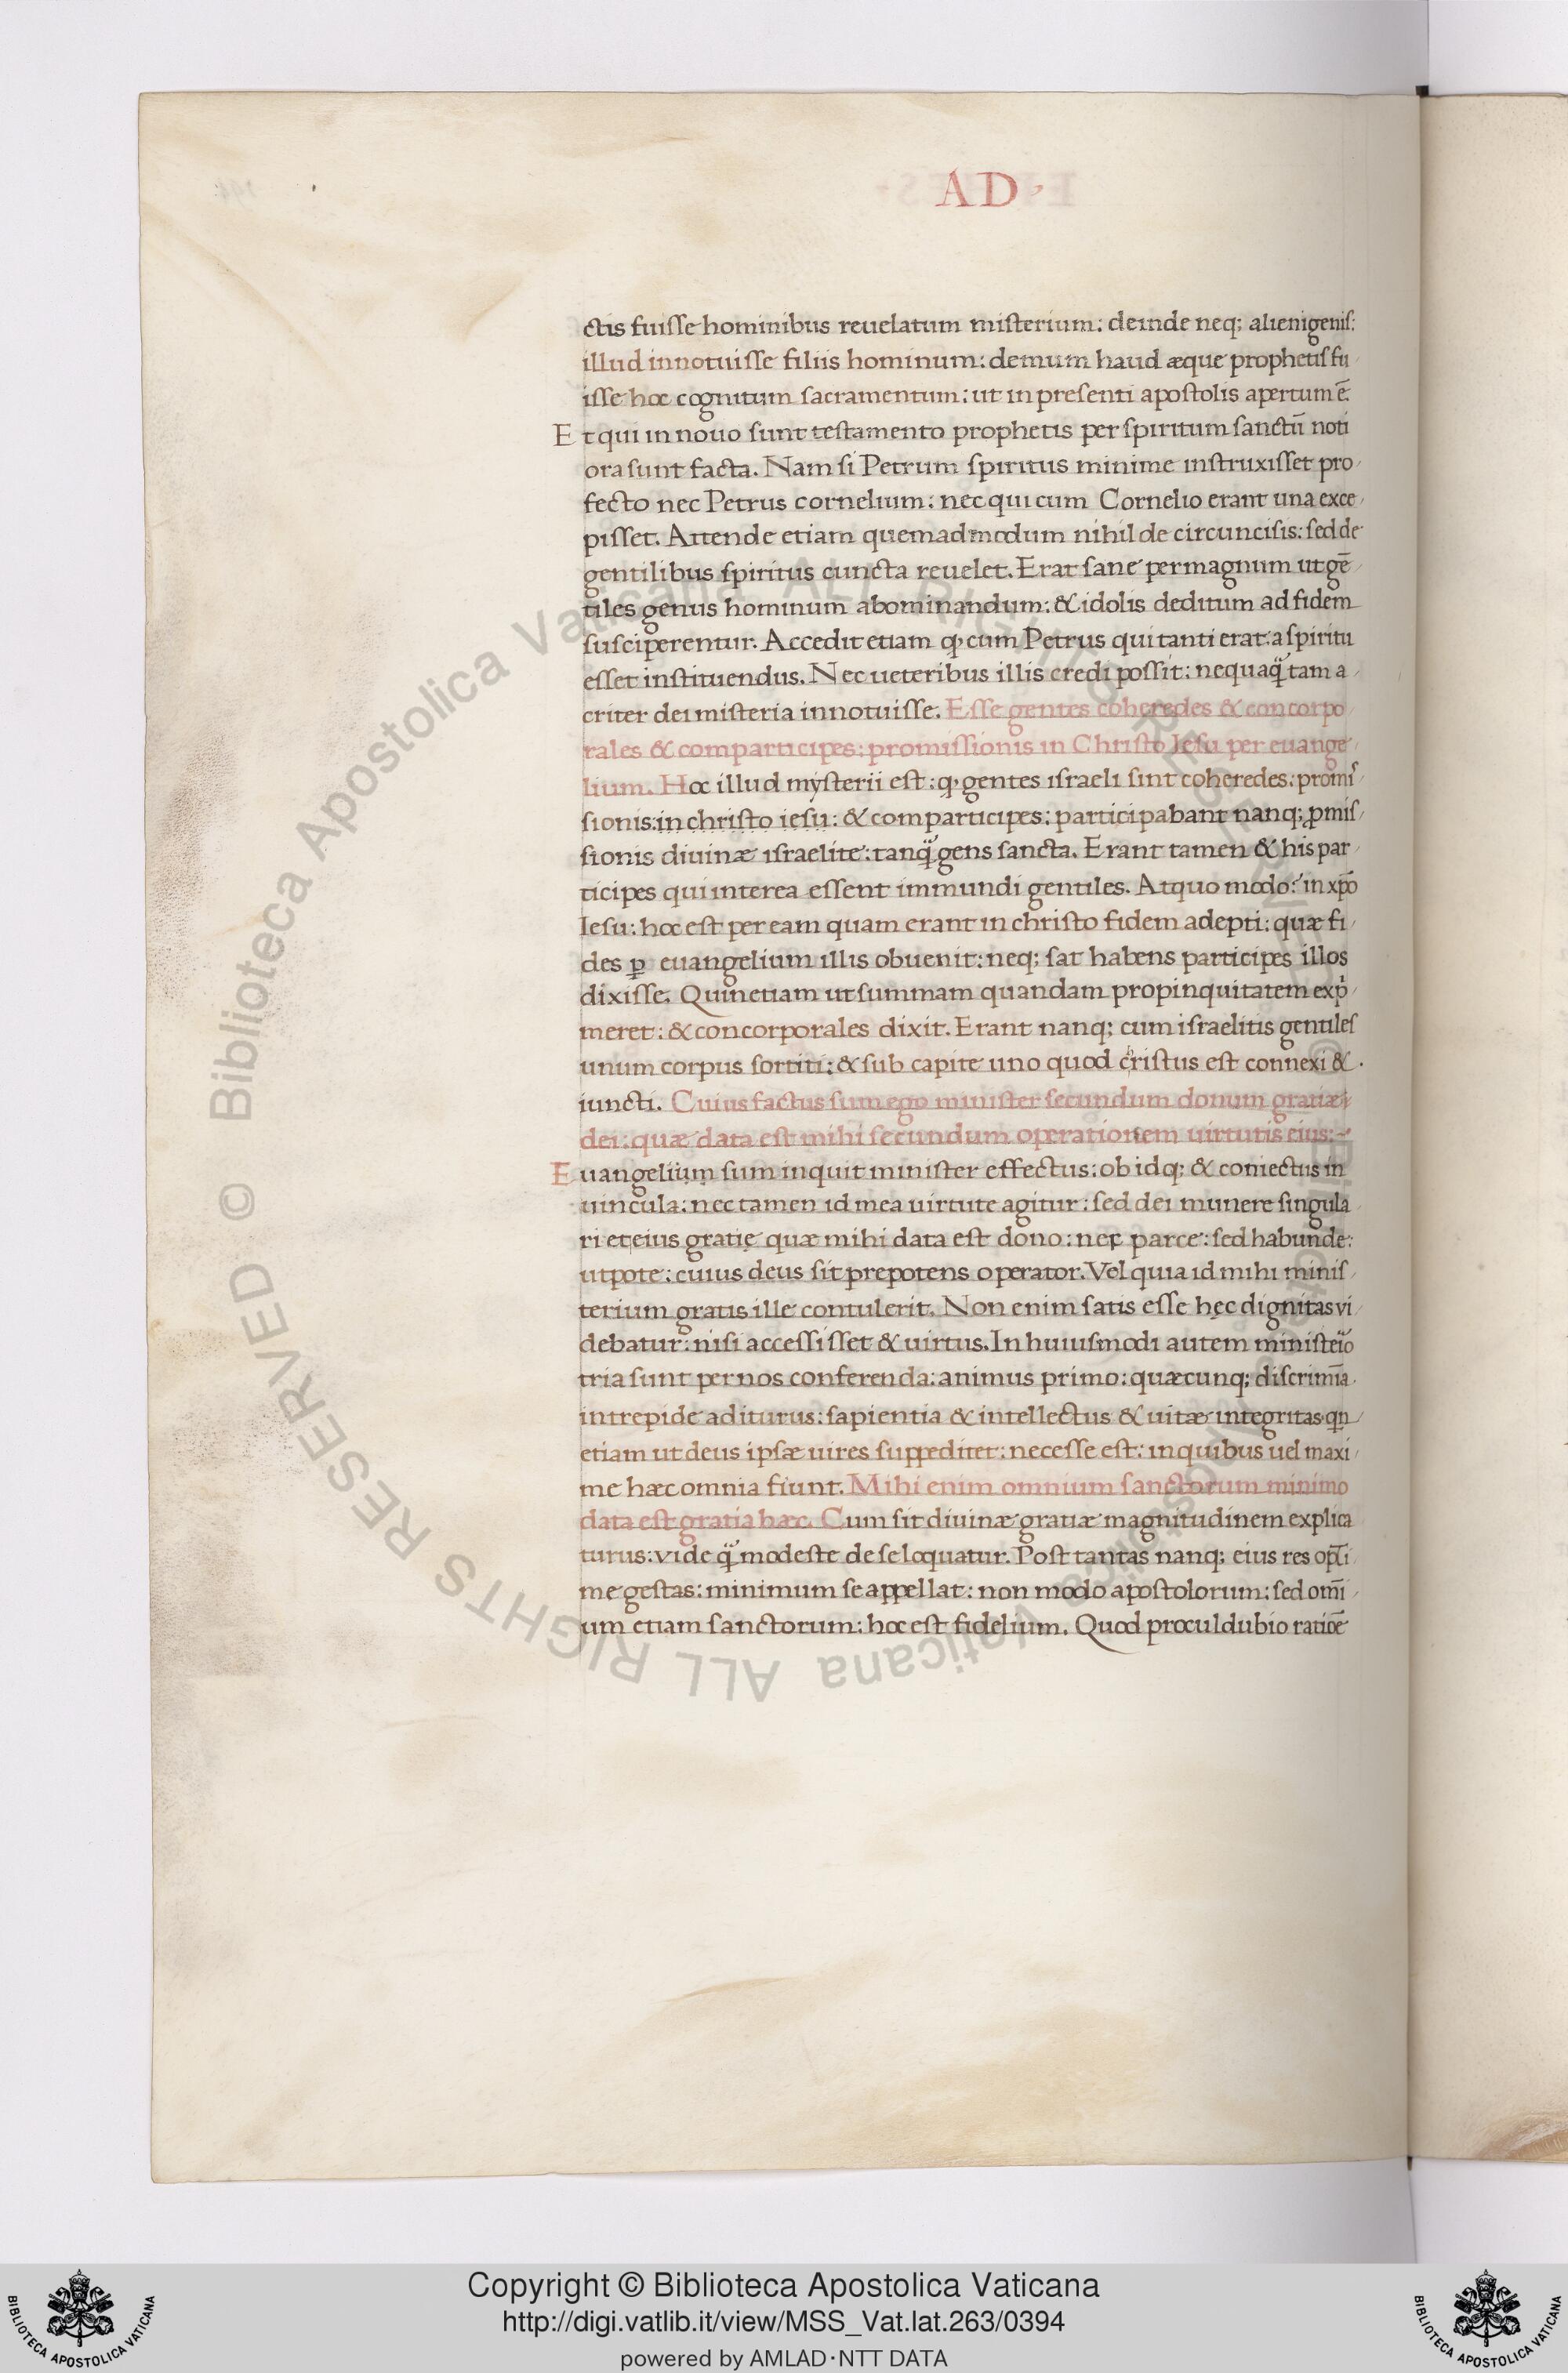 AD
ctis fuisse hominibus reuelatum misterium: deinde neq; alienigenis:
illud innotuisse filiis hominum: demum haud æque prophetis fu
isse hoc cognitum sacramentum: ut in presenti apostolis apertum ē.
Et qui in nouo sunt testamento prophetis per spiritum sanctū noti
ora sunt facta. Nam si Petrum spiritus minime instruxisset pro
fecto nec Petrus cornelium: nec qui cum Cornelio erant una exce
pisset. Attende etiam quemadmodum nihil de circuncisis: sed de
gentilibus spiritus cuncta reuelet. Erat sane permagnum ut gē
tiles genus hominum abominandum: & idolis deditum ad fidem
susciperentur. Accedit etiam ꝙ cum Petrus qui tanti erat: a spiritu
esset instituendus. Nec ueteribus illis credi possit: nequaq̈ tam a
criter dei misteria innotuisse. Esse gentes coheredes & concorpo
rales & comparticipes: promissionis in Christo Iesu per euange
lium. Hoc illud mysterii est: ꝙ gentes israeli sint coheredes: promis
sionis: in christo iesu: & comparticipes: participabant nanq; ꝓmis
sionis diuinæ israelite: tanq̈ gens sancta. Erant tamen & his par
ticipes qui interea essent immundi gentiles. At quo modo? in xp̄o
Iesu: hoc est per eam quam erant in christo fidem adepti: quæ fi
des ꝑ euangelium illis obuenit: neq; sat habens participes illos
dixisse. Quinetiam ut summam quandam propinquitatem exp̍
meret: & concorporales dixit. Erant nanq; cum israelitis gentiles
unum corpus sortiti: & sub capite uno quod christus est connexi &
iuncti. Cuius factus sum ego minister secundum donum gratiæ
dei: quæ data est mihi secundum operationem uirtutis eius:
Euangelium sum inquit minister effectus: ob idq; & coniectus in
uincula: nec tamen id mea uirtute agitur: sed dei munere singula
ri et eius gratię quæ mihi data est dono: nec parce: sed habunde:
utpote: cuius deus sit prepotens operator. Vel quia id mihi minis
terium gratis ille contulerit. Non enim satis esse hęc dignitas vi
debatur: nisi accessisset & uirtus. In huiusmodi autem ministerio
tria sunt per nos conferenda: animus primo: quæcunq; discrimīa
intrepide aditurus: sapientia & intellectus & uitæ integritas qn̄
etiam ut deus ipsæ uires suppeditet: necesse est: in quibus uel maxi
me hæc omnia fiunt. Mihi enim omnium sanctorum minimo
data est gratia hæc. Cum sit diuinæ gratiæ magnitudinem explica
turus: vide q̈ modeste de se loquatur. Post tantas nanq; eius res opti
me gestas: minimum se appellat: non modo apostolorum: sed omī
um etiam sanctorum: hoc est fidelium. Quod proculdubio ratiōe
Copyright © Biblioteca Apostolica Vaticana
http://digi.vatlib.it/view/MSS_Vat.lat.263/0394
powered by AMLAD·NTT DATA
BIBLIOTECA APOSTOLICA VATICANA
BIBLIOTECA APOSTOLICA VATICANA
© Biblioteca Apostolica Vaticana ALL RIGHTS RESERVED
© Biblioteca Apostolica Vaticana ALL RIGHTS RESERVED